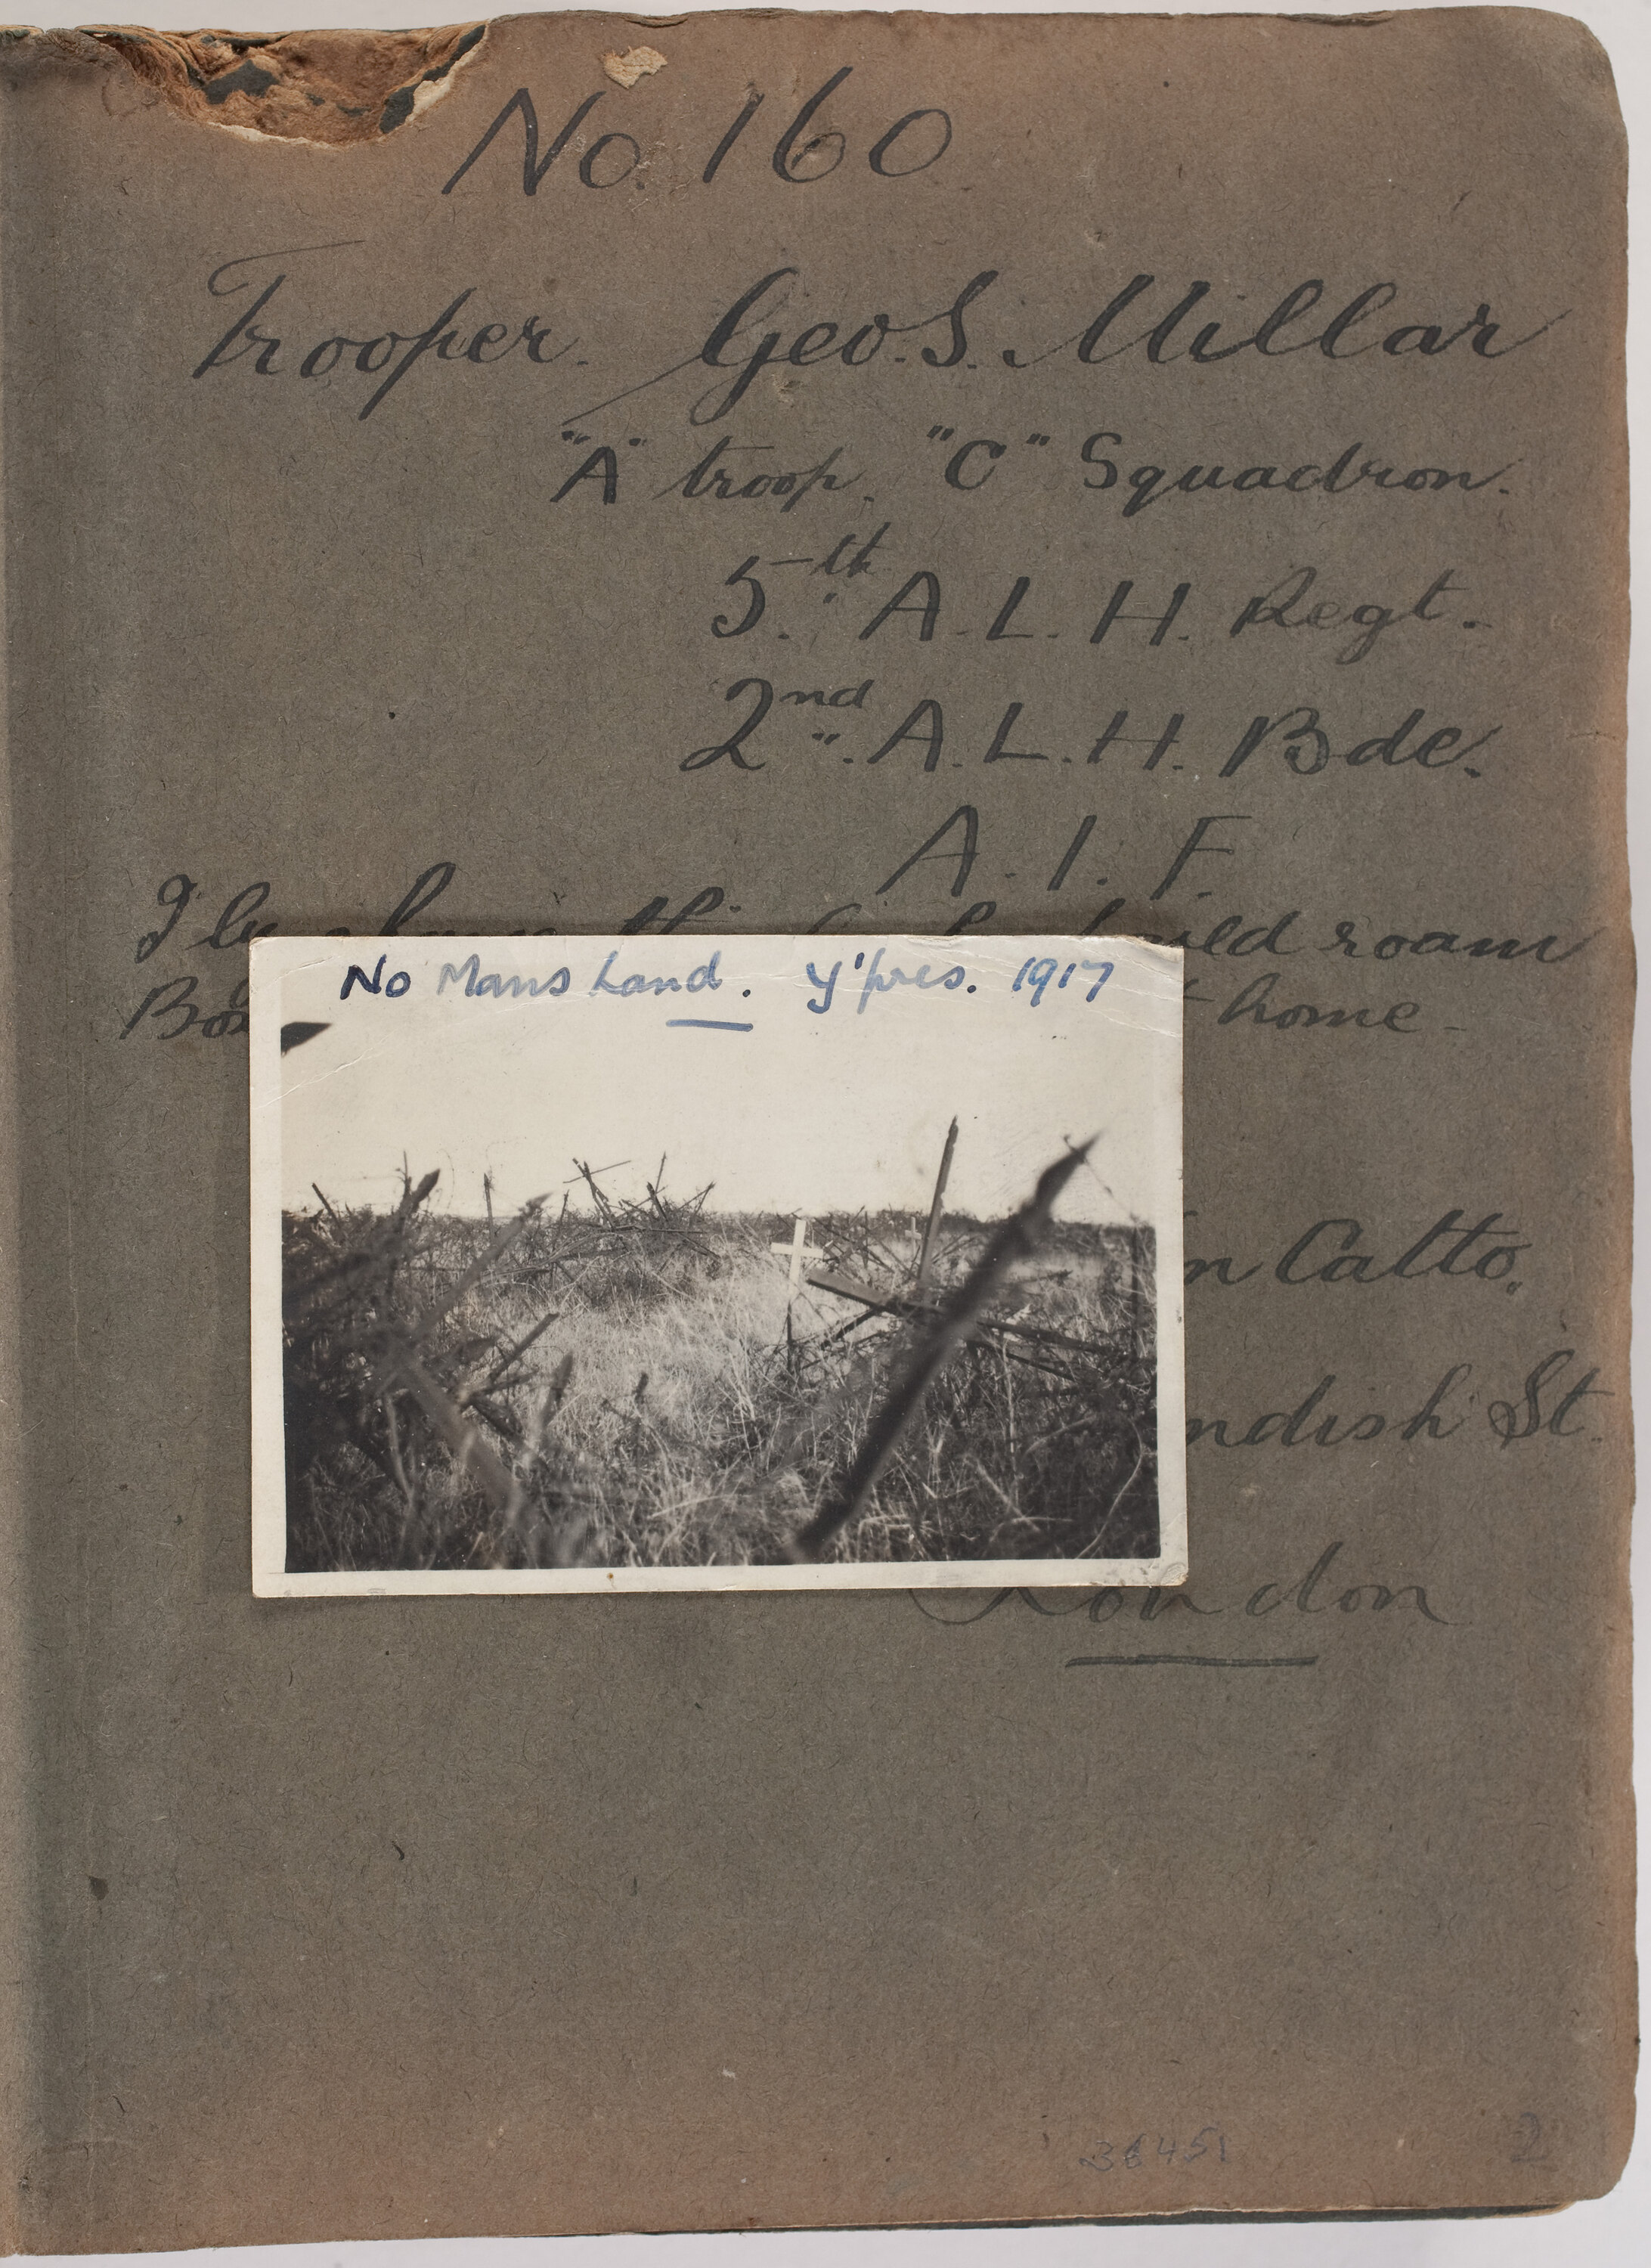 No. 160
Trooper. Geo. S. Millar
"A" troop, "C" Squadron.
5.th A. L. H. Regt.
2nd. A. L. H. Bde.
A. I. F.
roam
home
No Mans Land. Y'pres. 1917
Catto,
ndish St.
London
36451
2